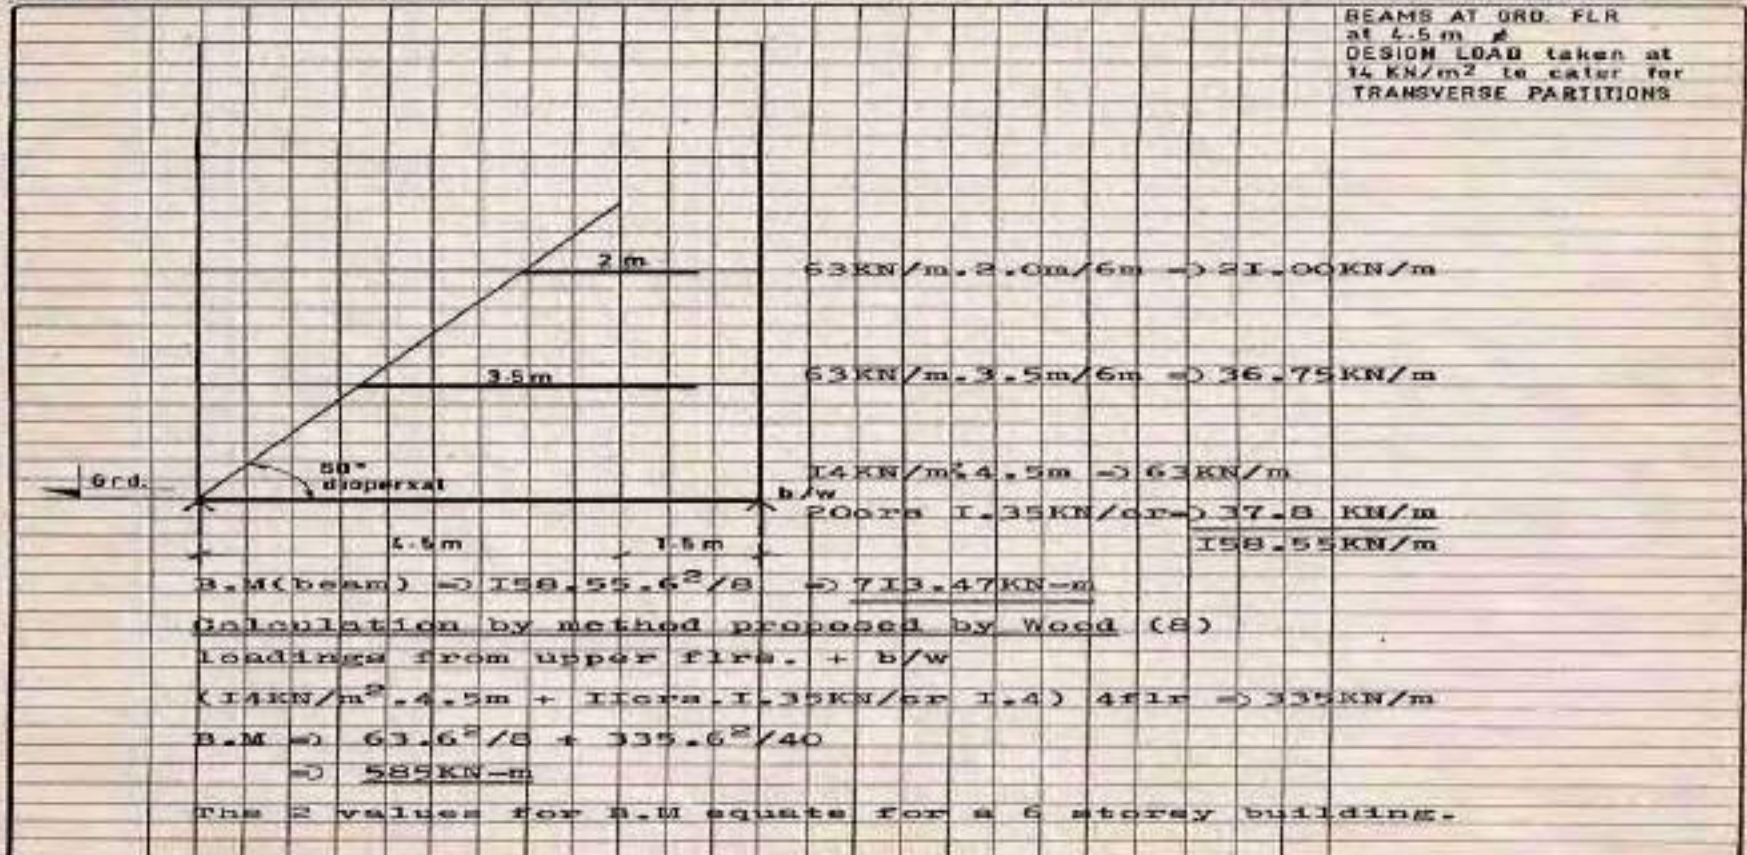 BEAMS AT GRD. FLR
at 4.5 m
DESIGN LOAD taken at
14 KN/m² to cater for
TRANSVERSE PARTITIONS
2 m
63KN/m.2.0m/6m => 2I.00KN/m
3.5m
63KN/m.3.5m/6m => 36.75KN/m
Grd.
50°
dispersal
b/w
I4KN/m².4.5m => 63KN/m
20crs I.35KN/cr=> 37.8 KN/m
I58.55KN/m
4.5m
1.5m
B.M(beam) => I58.55.6²/8 => 7I3.47KN-m
Calculation by method proposed by Wood (8)
loadings from upper flrs. + b/w
(I4KN/m².4.5m + IIcrs.I.35KN/cr I.4) 4flr => 335KN/m
B.M => 63.6²/8 + 335.6²/40
=> 585KN-m
The 2 values for B.M equate for a 6 storey building.